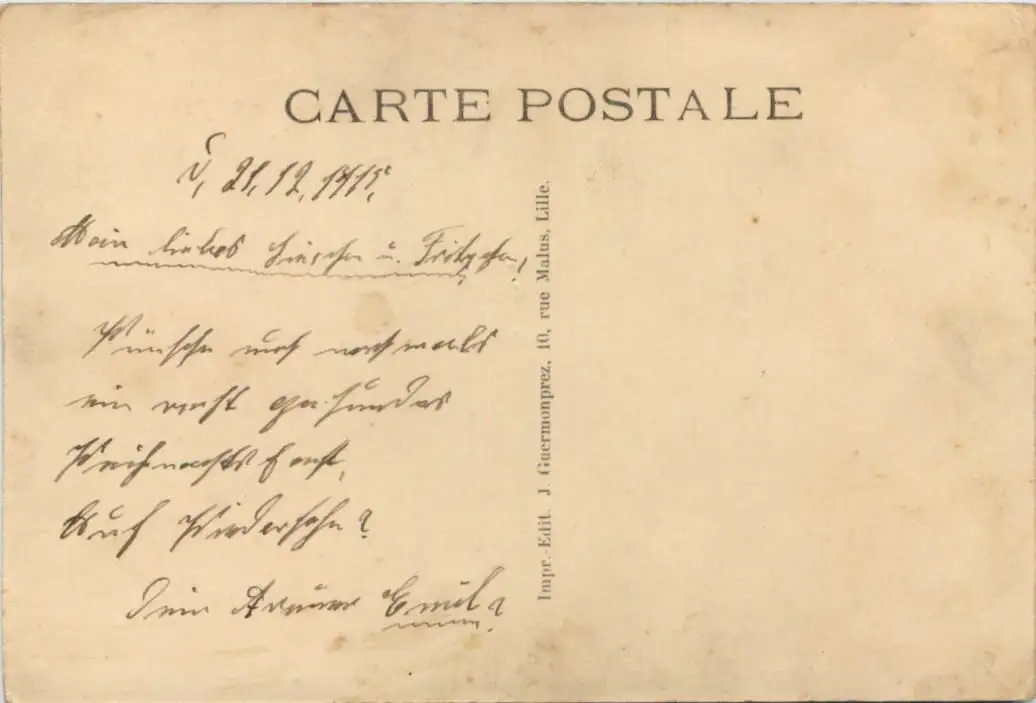 CARTE POSTALE
21.12.1915.
Mein liebes Lieschen u. Fritzchen!
Wünsche euch nochmals
ein recht gesundes
Weihnachtsfest,
Auf Wiedersehn?
Dein treuer Emil?
Impr.-Edit. J. Guermonprez, 10, rue Malus, Lille.